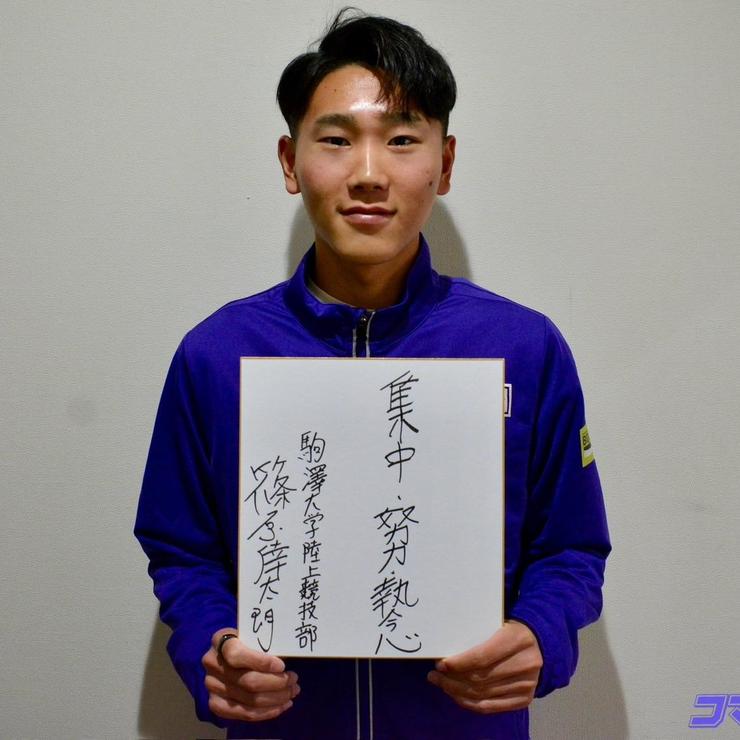 集中・努力・執念
駒澤大学陸上競技部
篠原倖太朗
コマ